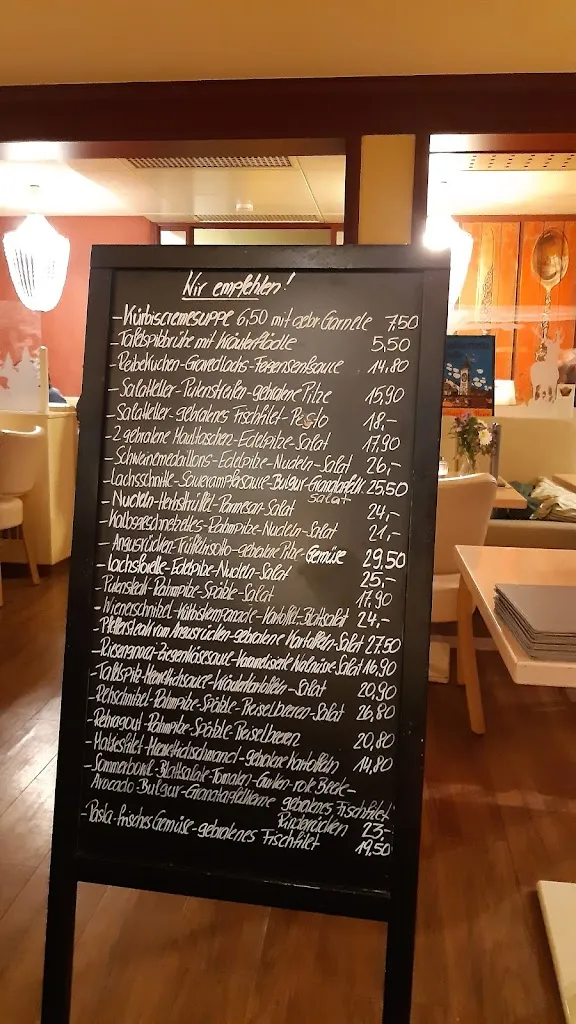 Wir empfehlen!
-Kürbiscremesuppe 6,50 mit gebr Garnele 7,50
-Tafelspitzbrühe mit Kräuterflädle 5,50
-Reibekuchen-Gravedlachs-Feigensenfsauce 14,80
-Salatteller-Putenstreifen-gebratene Pilze 15,90
-Salatteller-gebratenes Fischfilet-Pesto 18,-
-2 gebratene Maultaschen-Edelpilze-Salat 17,90
-Schweinemedaillons-Edelpilze-Nudeln-Salat 26,-
-Lachsschnitte-Sauerampfersauce-Bulgur-Granatapfelk. 25,50
salat
-Nudeln-Herbsttrüffel-Parmesan-Salat 24,-
-Kalbsgeschnetzeltes-Rahmpilze-Nudeln-Salat 21,-
-Angusrücken-Trüffelrisotto-gebratene Pilze-Gemüse 29,50
-Lachsforelle-Edelpilze-Nudeln-Salat 25,-
-Putensteak-Rahmpilze-Spätzle-Salat 17,90
-Wienerschnitzel-Kürbiskernpanade-Kartoffel-Blattsalat 24,-
-Pfeffersteak vom Angusrücken-gebratene Kartoffeln-Salat 27.50
-Ziegenkäsesauce-Karamellisierte Walnüsse-Salat 16,90
-Tafelspitz-Meerrettichsauce-Kräuterkartoffeln-Salat 20,90
-Rehschnitzel-Rahmpilze-Spätzle-Preiselbeeren-Salat 26,80
-Rehragout-Rahmpilze-Spätzle-Preiselbeeren 20,80
-Matjesfilet-Meerrettichschmand-gebratene Kartoffeln 14,80
-Sommerbowl-Blattsalate-Tomaten-Gurken-rote Beete-
Avocado-Bulgur-Granatapfelkerne gebratenes Fischfilet
Rinderrücken 23,-
-Pasta-frisches Gemüse-gebratenes Fischfilet 19,50